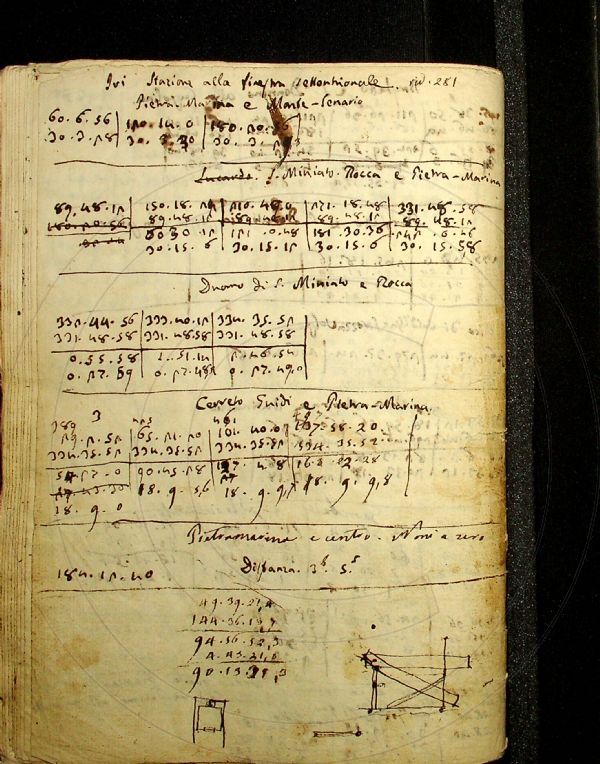 Ivi Stazione alla finestra settentrionale. vid. 281
Pietra Marina e Monte-Senario
60.6.56 120.14.0 180.20.
30.3.28 30.3.30 30.3.
Lucardo. S. Miniato. Rocca e Pietra-Marina
89.48.12 150.18.24 210.49.0 271.18.48 331.48.58
89.48.12 89.48.12 89.48.12 89.48.12
60 30 12 121.0.48 181.30.36 242.0.46
30.15.6 30.15.12 30.15.6 30.15.58
Duomo di S. Miniato e Rocca
332.44.56 333.40.12 334.35.52
331.48.58 331.48.58 331.48.58
0.55.58 1.51.14 2.46.54
0.27.59 0.27.48½ 0.27.49,0
Cerreto Guidi e Pietra-Marina
389
29.2.52 65.21.20 101.40.0 137.58.20
334.35.52 334.35.52 334.35.52 334.35.52
54.27.0 90.45.28 127.4.8 163.22.28
18.9.5,6 18.9.9, 18.9.9,8
18.9.0
Pietramarina e centro. Noni a zero
184.12.40 Distanza. 3 5
49.39.21,4
144.36.13,7
94.56.52,3
4.43.21,0
90.13.31,3